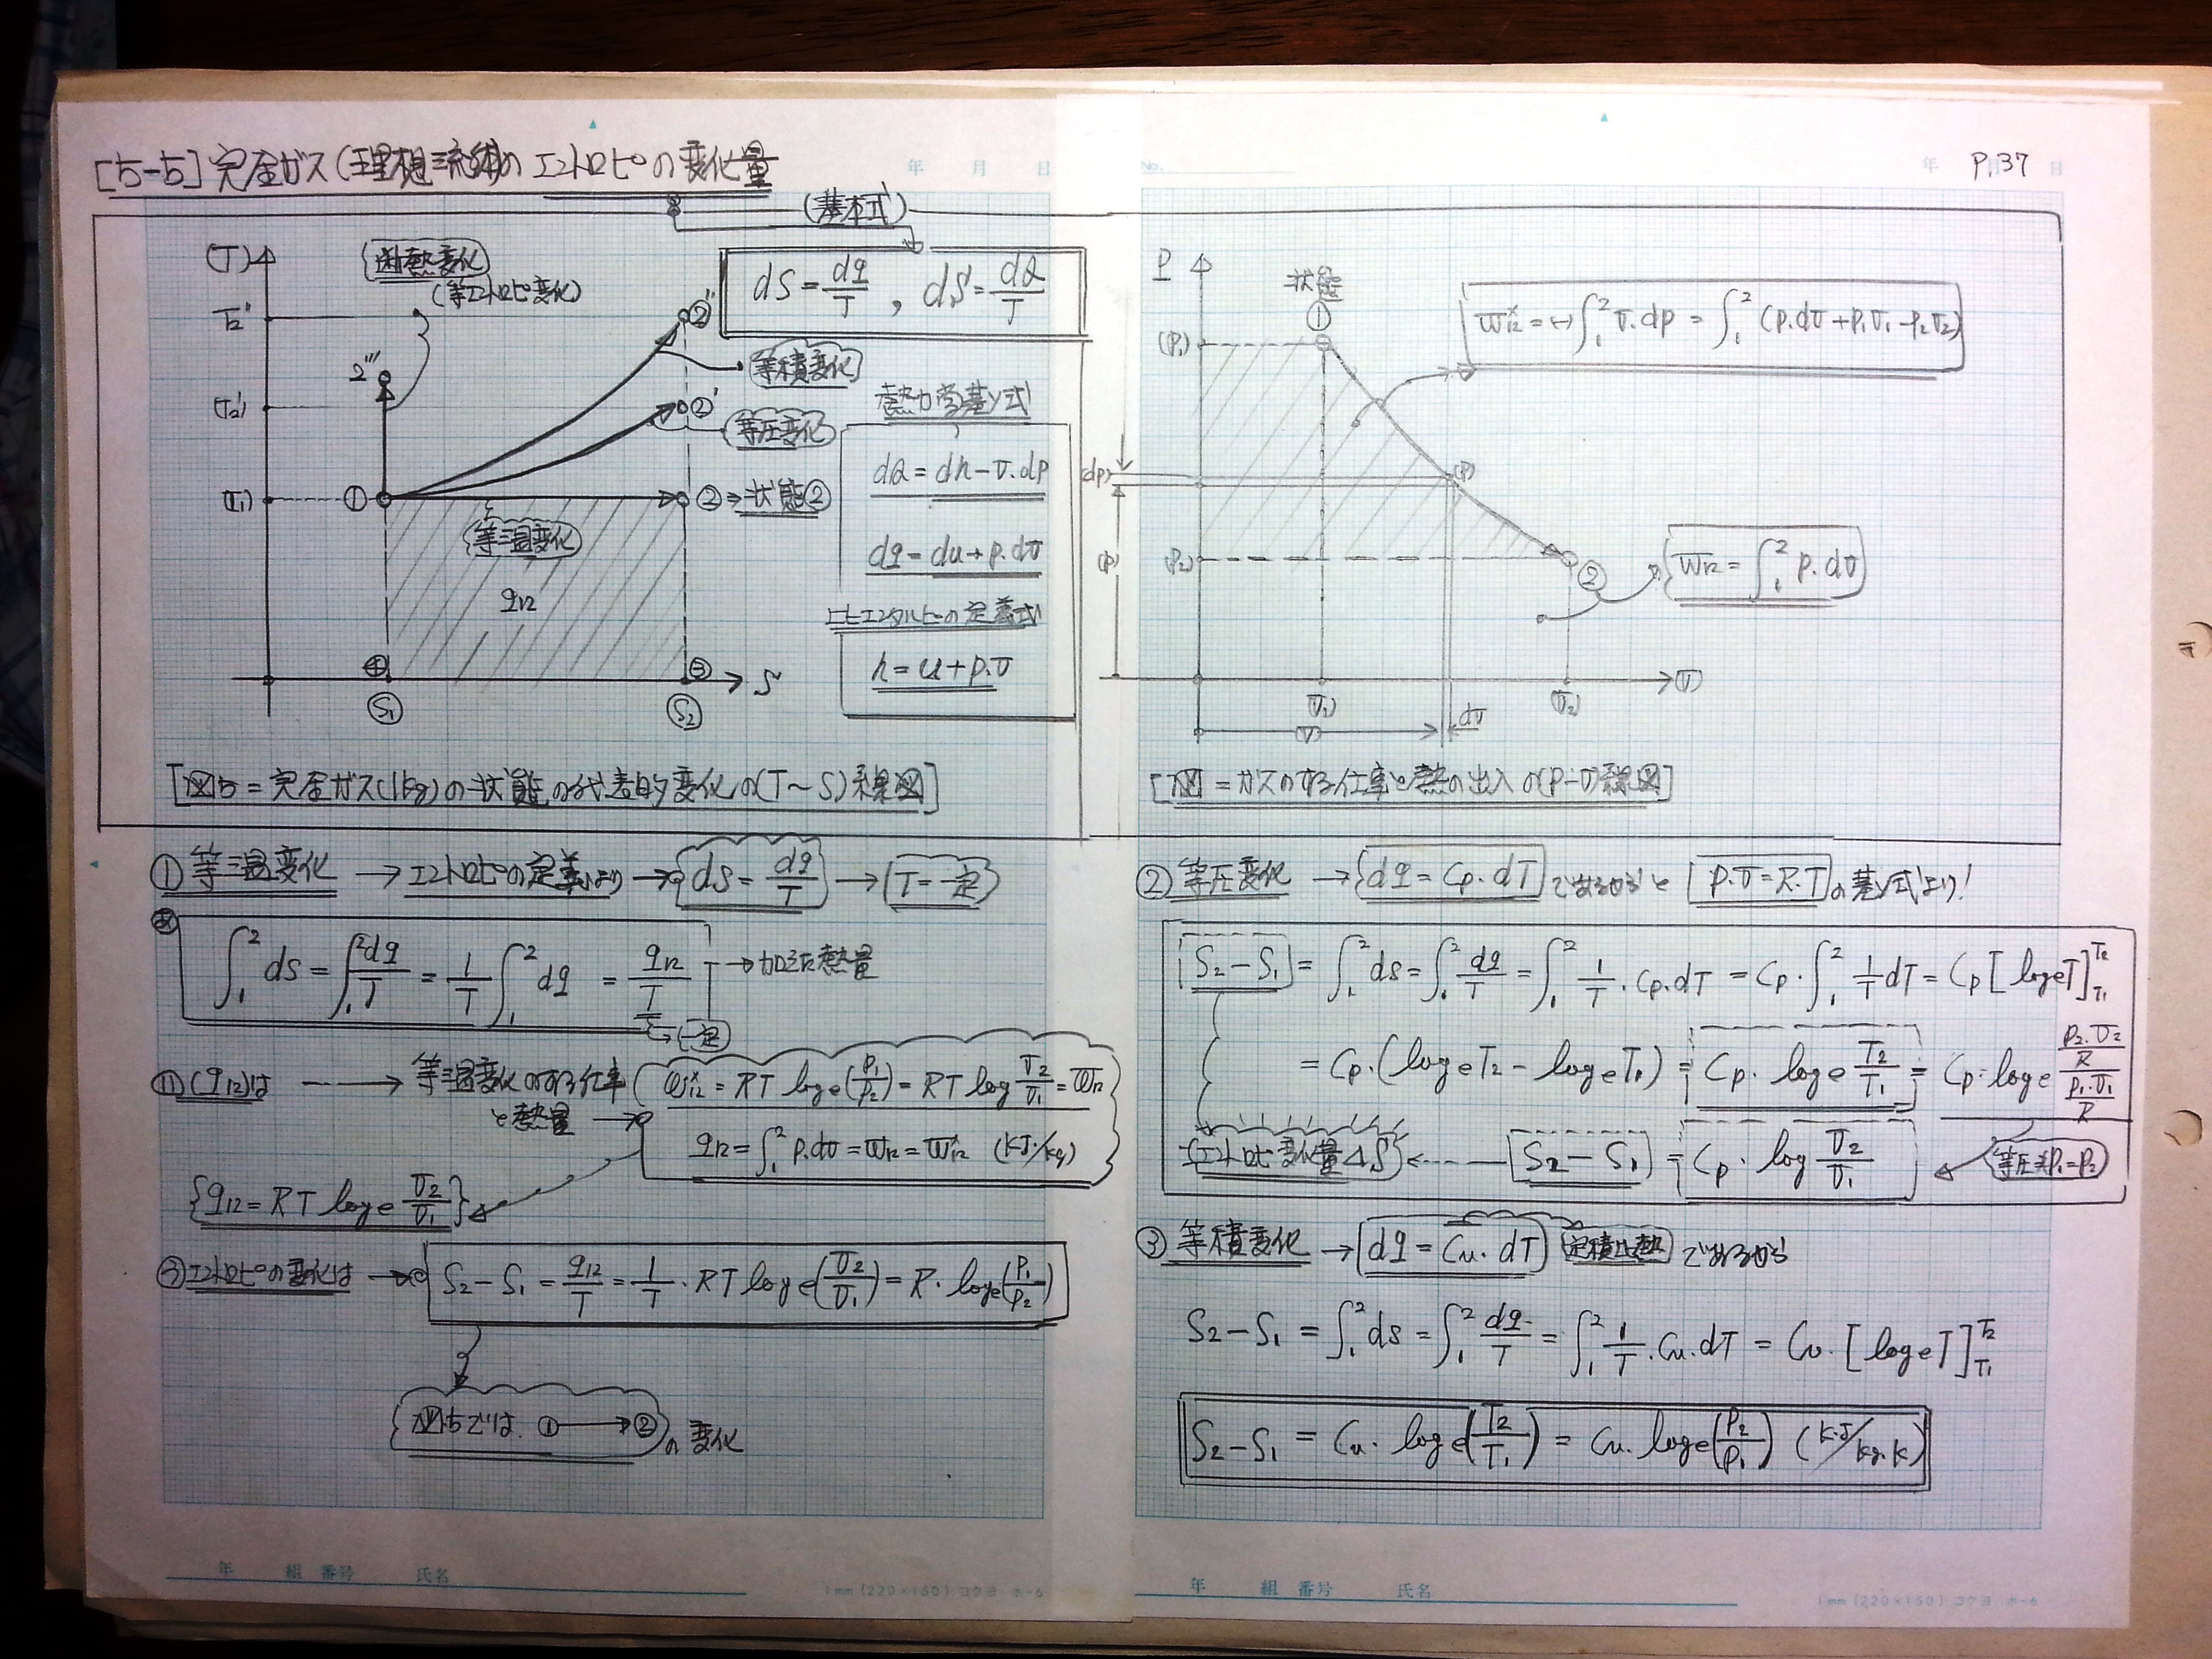 [5-5] 完全ガス(理想流体)のエントロピの変化量
年 月 日
No.
年 月 日
P.37
(基本式)
dS = dq/T , dS = dQ/T
(T)
断熱変化
(等エントロピ変化)
T2''
2'''
②''
等積変化
(T2')
②'
等圧変化
(T1)
①
② ⇒ 状態②
等温変化
q12
④
③
S
S1
S2
熱力学基ソ式
dQ = dh - v.dp
dq = du + p.dv
比エンタルピの定義式
h = u + p.v
[図5 = 完全ガス(1kg)の状態の代表的変化の(T~S)線図]
P
状態
①
(P1)
w*12 = (-)∫1 2 v.dp = ∫1 2 (p.dv + p1v1 - p2v2)
(dp)
(P)
(P)
(P2)
②
w12 = ∫1 2 p.dv
(v)
(v1)
(v2)
(v)
dv
[図 = ガスのする仕事と熱の出入の(P-v)線図]
① 等温変化 → エントロピの定義より → {dS = dq/T} → {T = 一定}
あ
∫1 2 ds = ∫1 2 dq/T = 1/T ∫1 2 dq = q12/T → 加えた熱量
→ (一定)
い (q12)は → 等温変化のする仕事
と熱量 →
w*12 = RT loge(P1/P2) = RT log v2/v1 = w12
q12 = ∫1 2 p.dv = w12 = w*12 (kJ/kg)
{q12 = RT loge v2/v1}
う エントロピの変化は → S2 - S1 = q12/T = 1/T · RT loge(v2/v1) = R · loge(P1/P2)
図5では. ① → ② の変化
② 等圧変化 → {dq = Cp · dT} であるからと [P.v = R.T] の基ソ式より!
S2 - S1 = ∫1 2 ds = ∫1 2 dq/T = ∫1 2 1/T · Cp.dT = Cp · ∫1 2 1/T dT = Cp [loge T] T2 T1
= Cp · (loge T2 - loge T1) = Cp · loge T2/T1 = Cp · loge (P2.v2/R)/(P1.v1/R)
エントロピ変化量 ΔS ← S2 - S1 = Cp · log v2/v1
(等圧 P1 = P2)
③ 等積変化 → dq = Cv · dT (定積比熱) であるから
S2 - S1 = ∫1 2 ds = ∫1 2 dq/T = ∫1 2 1/T · Cv.dT = Cv · [loge T] T2 T1
S2 - S1 = Cv · loge(T2/T1) = Cv · loge(P2/P1) (kJ/kg.K)
年 組 番号 氏名
1mm (220×160) コクヨ ホ-6
年 組 番号 氏名
1mm (220×160) コクヨ ホ-6